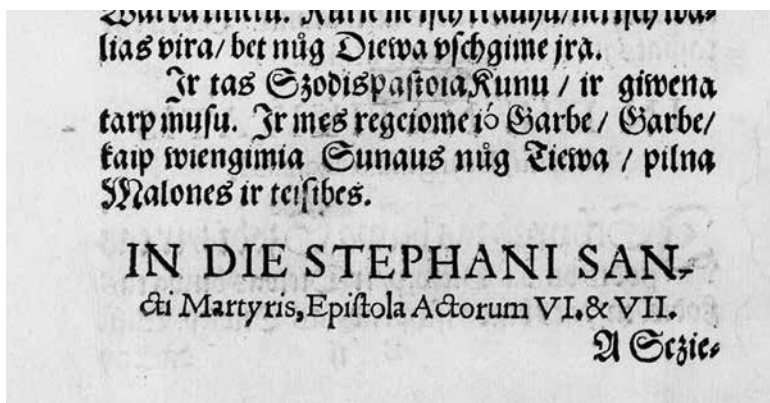 lias vira/ bet nůg Diewa vſchgime jra.
Jr tas Szodis paſtoia Kunu / ir giwena
tarp muſu. Jr mes regeiome ió Garbe / Garbe/
kaip wiengimia Sunaus nůg Tiewa / pilna
Malones ir teiſibes.
IN DIE STEPHANI SAN-
cti Martyris, Epiſtola Actorum VI. & VII.
A Sczie-